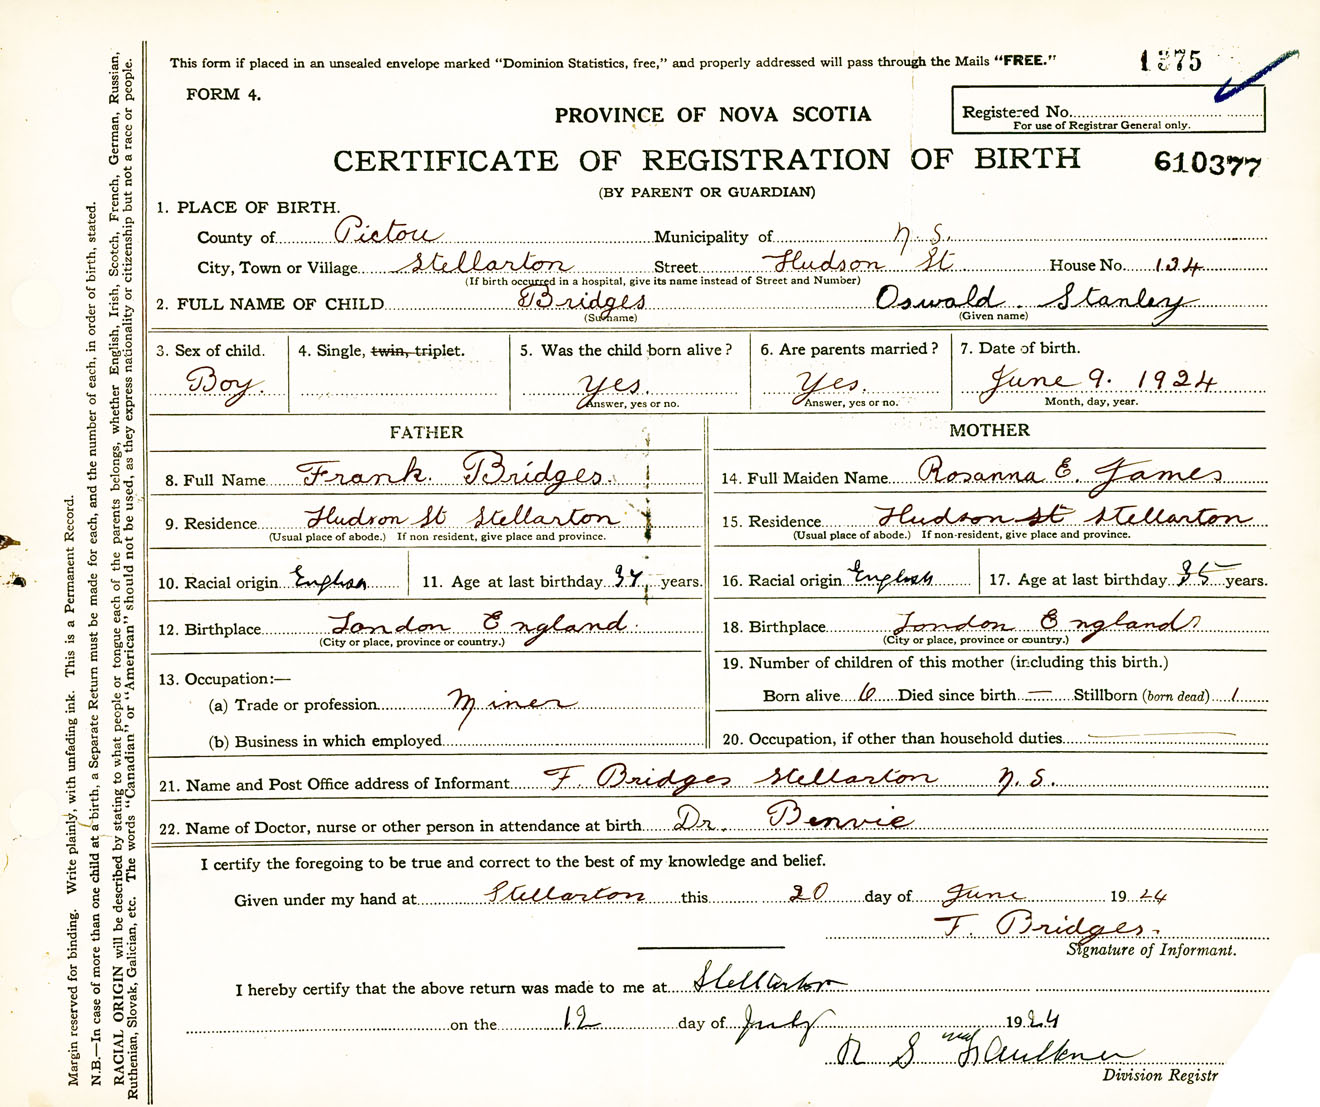 This form if placed in an unsealed envelope marked "Dominion Statistics, free," and properly addressed will pass through the Mails "FREE."
1375
FORM 4.
PROVINCE OF NOVA SCOTIA
Registered No.
For use of Registrar General only.
CERTIFICATE OF REGISTRATION OF BIRTH
610377
(BY PARENT OR GUARDIAN)
1. PLACE OF BIRTH.
County of Pictou Municipality of N. S.
City, Town or Village Stellarton Street Hudson St House No. 134
(If birth occurred in a hospital, give its name instead of Street and Number)
2. FULL NAME OF CHILD Bridges Oswald Stanley
(Surname) (Given name)
3. Sex of child. 4. Single, twin, triplet. 5. Was the child born alive? 6. Are parents married? 7. Date of birth.
Boy. Yes. Yes. June 9. 1924
Answer, yes or no. Answer, yes or no. Month, day, year.
FATHER
8. Full Name Frank. Bridges.
9. Residence Hudson St Stellarton
(Usual place of abode.) If non resident, give place and province.
10. Racial origin English 11. Age at last birthday 37 years.
12. Birthplace London England.
(City or place, province or country.)
13. Occupation:—
(a) Trade or profession Miner
(b) Business in which employed
MOTHER
14. Full Maiden Name Rosanna E. James
15. Residence Hudson St Stellarton
(Usual place of abode.) If non-resident, give place and province.
16. Racial origin English 17. Age at last birthday 35 years.
18. Birthplace London England
(City or place, province or country.)
19. Number of children of this mother (including this birth.)
Born alive 6 Died since birth — Stillborn (born dead) 1
20. Occupation, if other than household duties
21. Name and Post Office address of Informant F. Bridges Stellarton N. S.
22. Name of Doctor, nurse or other person in attendance at birth Dr. Benvie
I certify the foregoing to be true and correct to the best of my knowledge and belief.
Given under my hand at Stellarton this 20 day of June 1924
F. Bridges.
Signature of Informant.
I hereby certify that the above return was made to me at Stellarton
on the 12 day of July 1924
Faulkner
Division Registr
Margin reserved for binding. Write plainly, with unfading ink. This is a Permanent Record.
N.B.—In case of more than one child at a birth, a Separate Return must be made for each, and the number of each, in order of birth, stated.
RACIAL ORIGIN will be described by stating to what people or tongue each of the parents belongs, whether English, Irish, Scotch, French, German, Russian,
Ruthenian, Slovak, Galician, etc. The words "Canadian" or "American" should not be used, as they express nationality or citizenship but not a race or people.